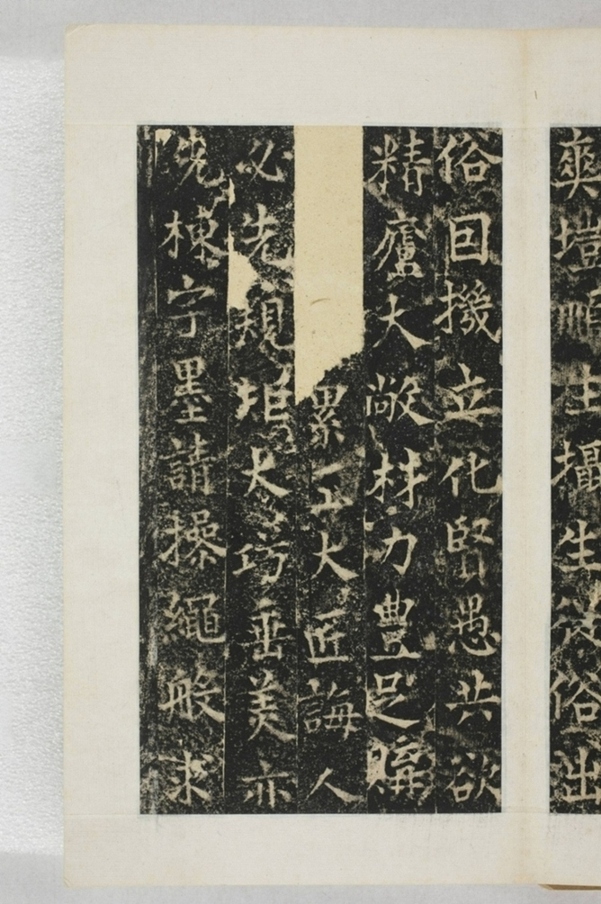 爽塏攝生從俗出
俗回機立化賢愚共欲
精廬大敞材力豐足
累工大匠誨人
必先規矩大巧垂美亦
況棟宇墨請操繩般求